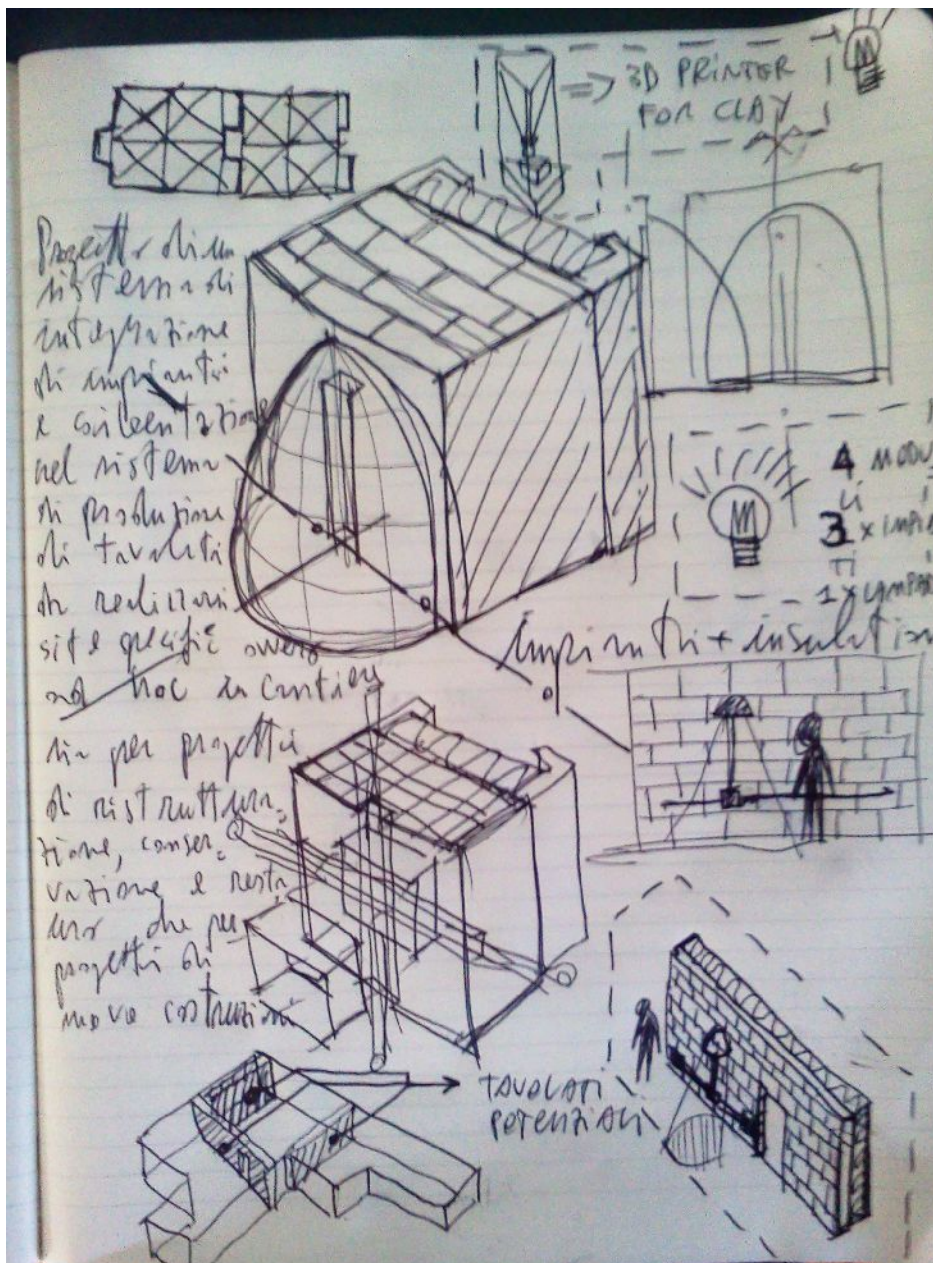 3D PRINTER
FOR CLAY
Progetto di un
sistema di
integrazione
di impianti
e coibentazione
nel sistema
di produzione
di tavolati
da realizzarsi
site specific ovvero
ad hoc in cantiere
sia per progetti
di ristruttura-
zione, conser-
vazione e resta
uro che per
progetti di
nuove costruzioni
4 MODU
LI
3 x IMPIA
TI
1 x
impianti + insulation
TAVOLATI
POTENZIALI